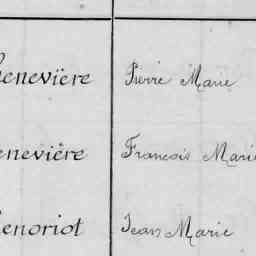 enevière Pierre Marie
enevière François Marie
enoriot Jean Marie